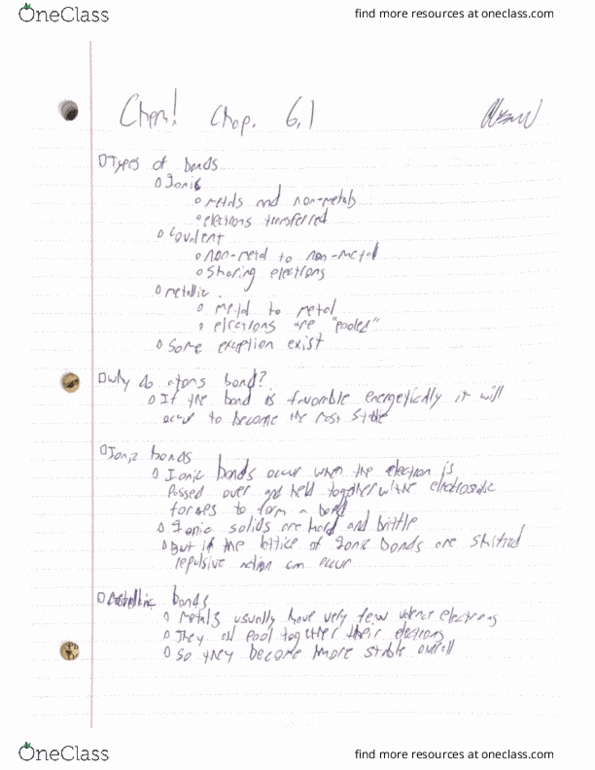 OneClass
find more resources at oneclass.com
Chem! Chap. 6.1
Types of bonds
Ionic
metals and non-metals
electrons transferred
Covalent
non-metal to non-metal
Sharing electrons
metallic
metal to metal
electrons are "pooled"
Some exception exist
Why do atoms bond?
If the bond is favorable energetically it will
occur to become the most stable
Ionic bonds
Ionic bonds occur when the electron is
passed over and held together w/ the electrostatic
forces to form a bond
Ionic solids are hard and brittle
But if the lattice of Ionic bonds are shifted
repulsive action can occur
Metallic bonds
Metals usually have very few valence electrons
They all pool together their electrons
So they become more stable overall
OneClass
find more resources at oneclass.com